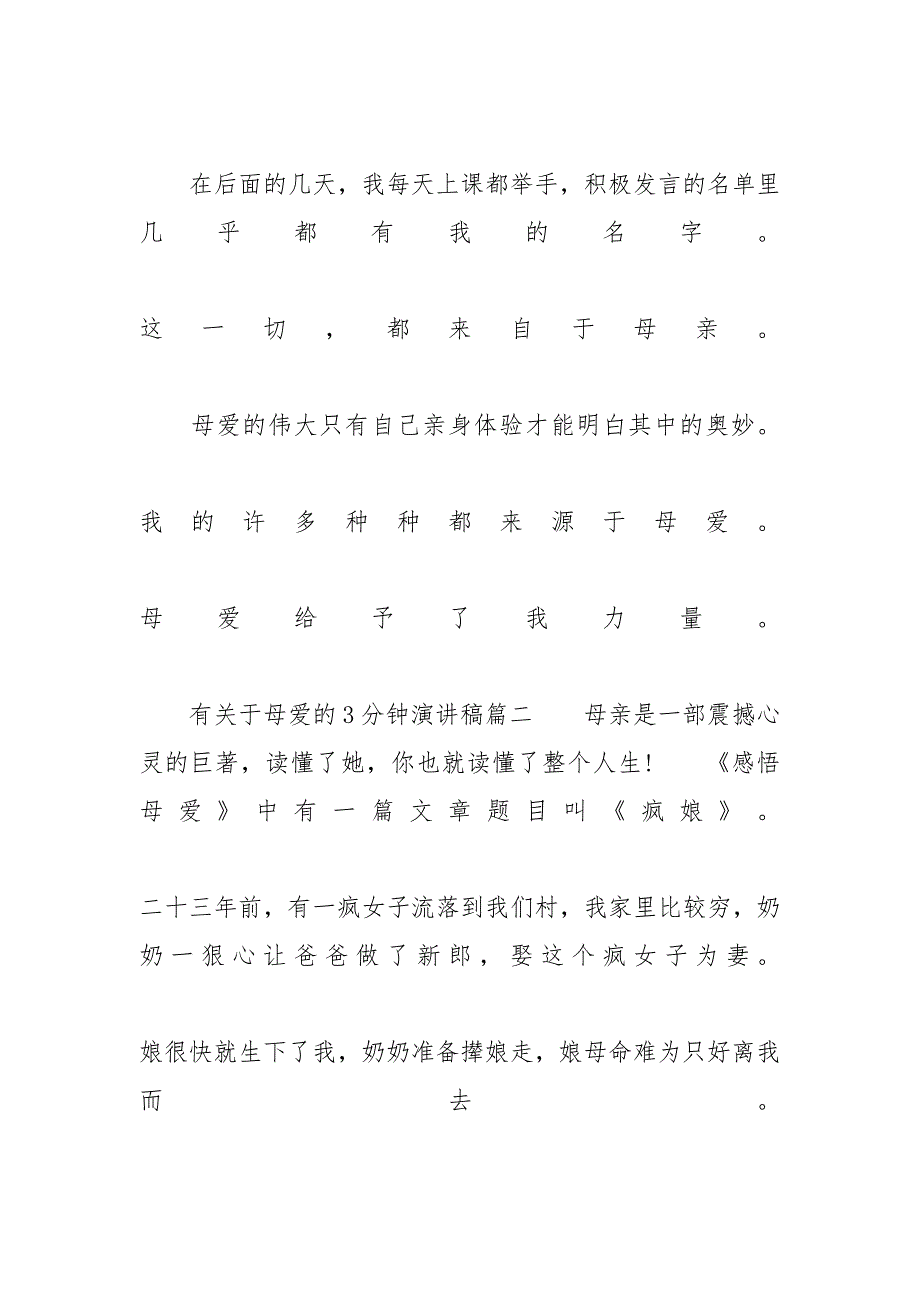 在后面的几天，我每天上课都举手，积极发言的名单里
几乎都有我的名字。
这一切，都来自于母亲。
母爱的伟大只有自己亲身体验才能明白其中的奥妙。
我的许多种种都来源于母爱。
母爱给予了我力量。
有关于母爱的3分钟演讲稿篇二　　母亲是一部震撼心
灵的巨著，读懂了她，你也就读懂了整个人生!　　《感悟
母爱》中有一篇文章题目叫《疯娘》。
二十三年前，有一疯女子流落到我们村，我家里比较穷，奶
奶一狠心让爸爸做了新郎，娶这个疯女子为妻。
娘很快就生下了我，奶奶准备撵娘走，娘母命难为只好离我
而去。